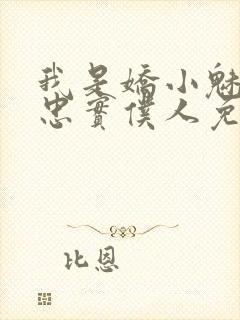 我是嬌小魅
忠實僕人兔
比恩